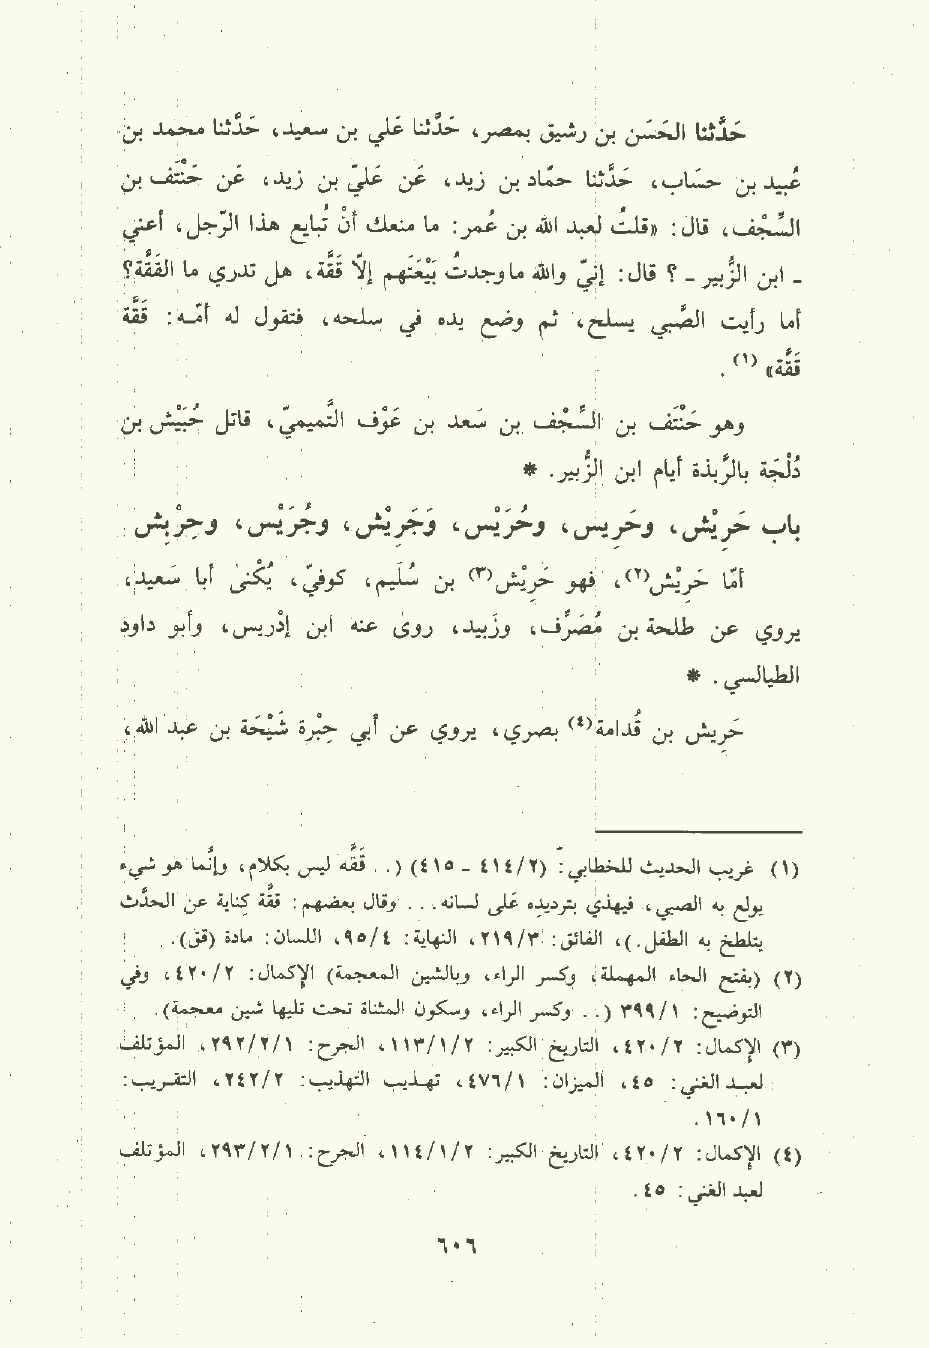 حَدَّثنا الحَسَن بن رشيق بمصر، حَدَّثنا عَلي بن سعيد، حَدَّثنا محمد بن
عُبيد بن حسَاب، حَدَّثنا حمَّاد بن زيد، عَن عَليّ بن زيد، عَن حَنْتَف بن
السِّجْف، قال: «قلتُ لعبد الله بن عُمر: ما منعك أنْ تُبايع هذا الرَّجل، أعني
ـ ابن الزُّبير ـ ؟ قال: إنيّ والله ماوجدتُ بَيْعَتَهم إلاَّ قَقَّة، هل تدري ما القَقَّة؟
أما رأيت الصَّبي يسلح، ثم وضع يده في سلحه، فتقول له أمَّـه: قَقَّة
قَقَّة» (١) .
وهو حَنْتَف بن السِّجْف بن سَعد بن عَوْف التَّميميّ، قاتل حُبَيْش بن
دُلْجَة بالرَّبذة أيام ابن الزُّبير. *
باب حَرِيْش، وحَرِيس، وحُرَيْس، وَجَرِيْش، وجُرَيْس، وحِرْبش
أمَّا حَرِيْش(٢)، فهو حَرِيْش(٣) بن سُلَيم، كوفيّ، يُكْنىٰ أبا سَعيد،
يروي عن طلحة بن مُصَرِّف، وزَبيد، روى عنه ابن إدْريس، وأبو داود
الطيالسي. *
حَرِيش بن قُدامة(٤) بصري، يروي عن أبي حِبْرة شَيْحَة بن عبد الله،
(١) غريب الحديث للخطابي: (٢/٤١٤ ـ ٤١٥) (.. قَقَّه ليس بكلام، وإنَّما هو شيء
يولع به الصبي، فيهذي بترديده على لسانه... وقال بعضهم: ققَّة كناية عن الحدَّث
يتلطخ به الطفل.)، الفائق: ٣/٢١٩، النهاية: ٤/٩٥، اللسان: مادة (قق)..
(٢) (بفتح الحاء المهملة، وكسر الراء، وبالشين المعجمة) الإكمال: ٢/٤٢٠، وفي
التوضيح: ١/٣٩٩ (.. وكسر الراء، وسكون المثناة تحت تليها شين معجمة).
(٣) الإكمال: ٢/٤٢٠، التاريخ الكبير: ٢/١/١١٣، الجرح: ١/٢/٢٩٢، المؤتلف
لعبـد الغني: ٤٥، الميزان: ١/٤٧٦، تهـذيب التهذيب: ٢/٢٤٢، التقـريب:
١/١٦٠.
(٤) الإكمال: ٢/٤٢٠، التاريخ الكبير: ٢/١/١١٤، الجرح: ١/٢/٢٩٣، المؤتلف
لعبد الغني: ٤٥.
٦٠٦